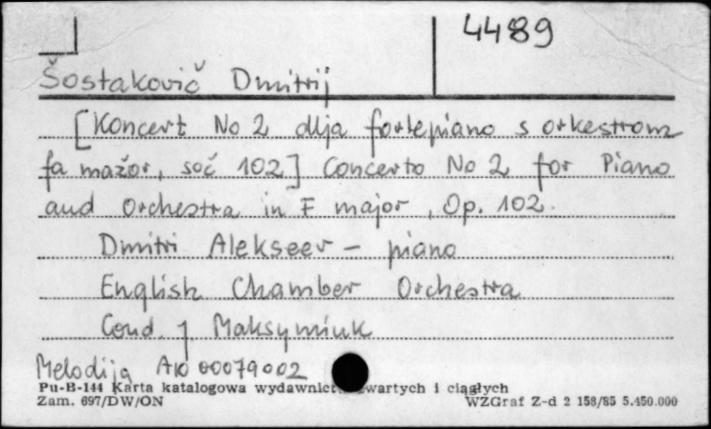 4489
Šostakovič Dmitrij
[Koncert No 2 dlja fortepiano s orkestrom
fa mažor, soč 102] Concerto No 2 for Piano
and Orchestra in F major, Op. 102.
Dmitri Alekseev – piano
English Chamber Orchestra
Cond. J Maksymiuk
Melodija A10 00079002
Pu-B-144 Karta katalogowa wydawnict zwartych i ciągłych
Zam. 697/DW/ON WZGraf Z-d 2 158/85 5.450.000